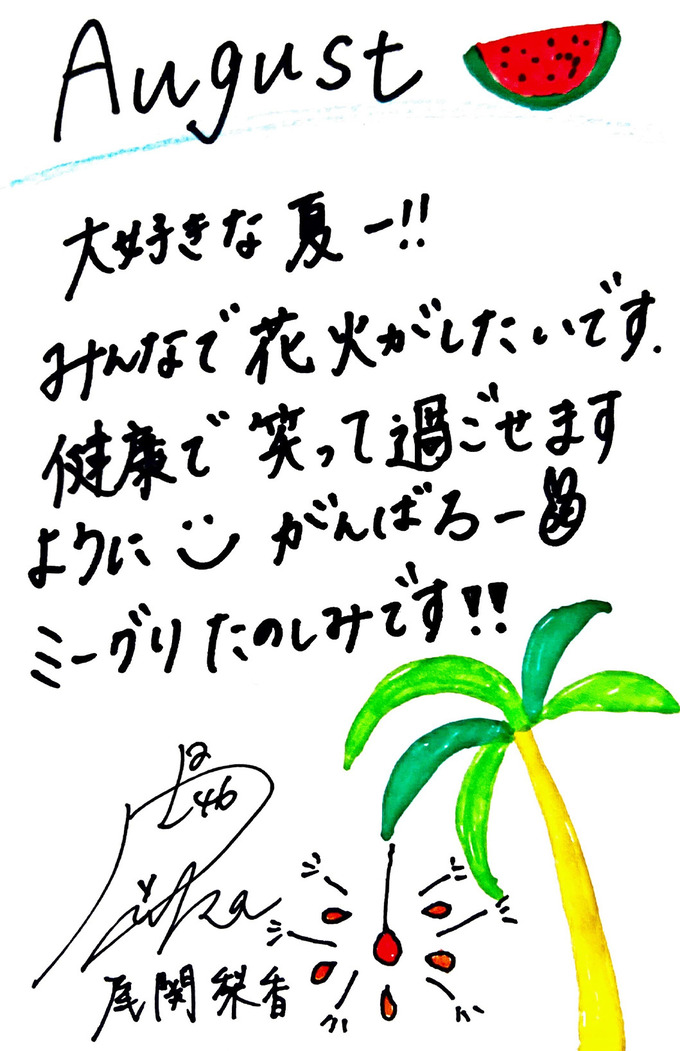 August
大好きな夏ー!!
みんなで花火がしたいです.
健康で笑って過ごせます
ように がんばろー
ミーグリたのしみです!!
46
尾関梨香